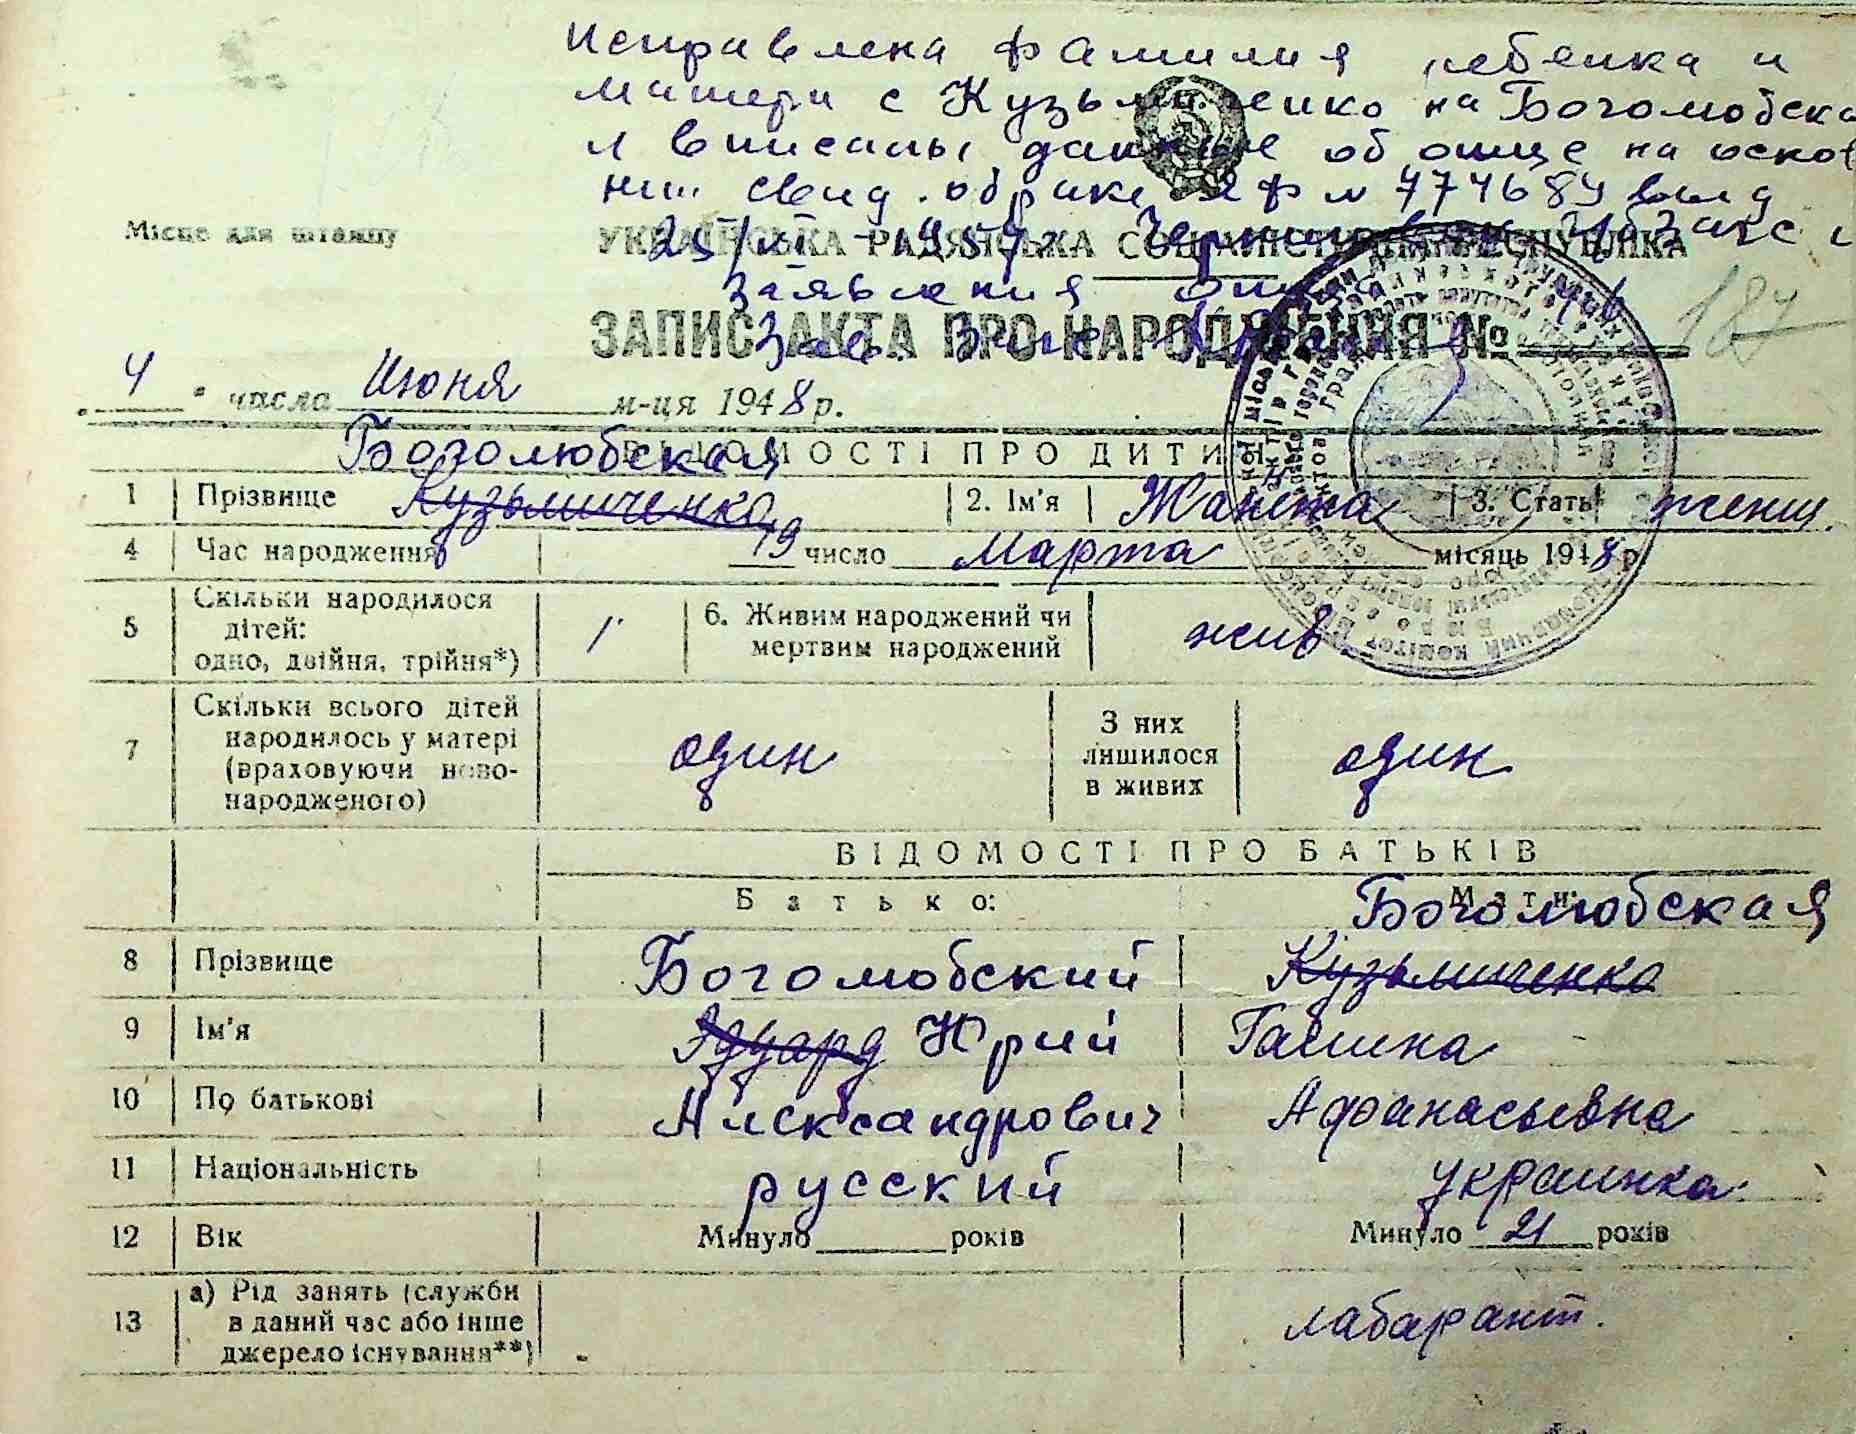 Исправлена фамилия ребенка и
матери с Кузьмиченко на Боголюбская
и вписаны данные об отце на основ
нии свид. о браке ЯФ № 774684 выд
Місце для штампу
УКРАЇНСЬКА РАДЯНСЬКА СОЦІАЛІСТИЧНА РЕСПУБЛІКА
25/XI - 1957г. загс
заявления отца
ЗАПИС АКТА ПРО НАРОДЖЕННЯ № 187
4 " числа Июня м-ця 1948 р.
ВІДОМОСТІ ПРО ДИТИНУ
Боголюбская
1 Прізвище Кузьмиченко 2. Ім'я Жанета 3. Стать женщ.
4 Час народження 19 число Марта місяць 1948 р.
5 Скільки народилося дітей: одно, двійня, трійня*) 1 6. Живим народжений чи мертвим народжений жив.
7 Скільки всього дітей народилось у матері (враховуючи новонародженого) один З них лишилося в живих один
ВІДОМОСТІ ПРО БАТЬКІВ
Батько: Мати:
Боголюбская
8 Прізвище Боголюбский Кузьмиченко
9 Ім'я Эдуард Юрий Галина
10 По батькові Александрович Афанасьевна
11 Національність русский украинка.
12 Вік Минуло років Минуло 21 років
13 а) Рід занять (служби в даний час або інше джерело існування**) лабарант.